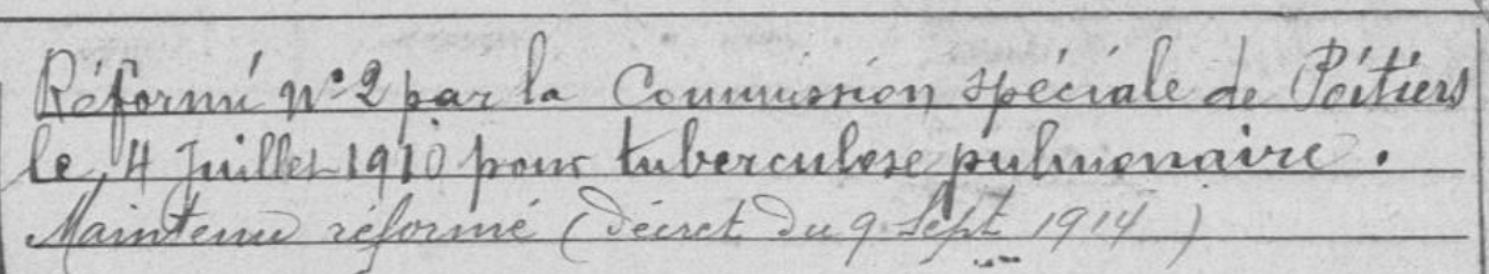 Réformé n° 2 par la Commission spéciale de Poitiers
le 4 Juillet 1910 pour tuberculose pulmonaire.
Maintenu réformé (décret du 9 Sept 1914)